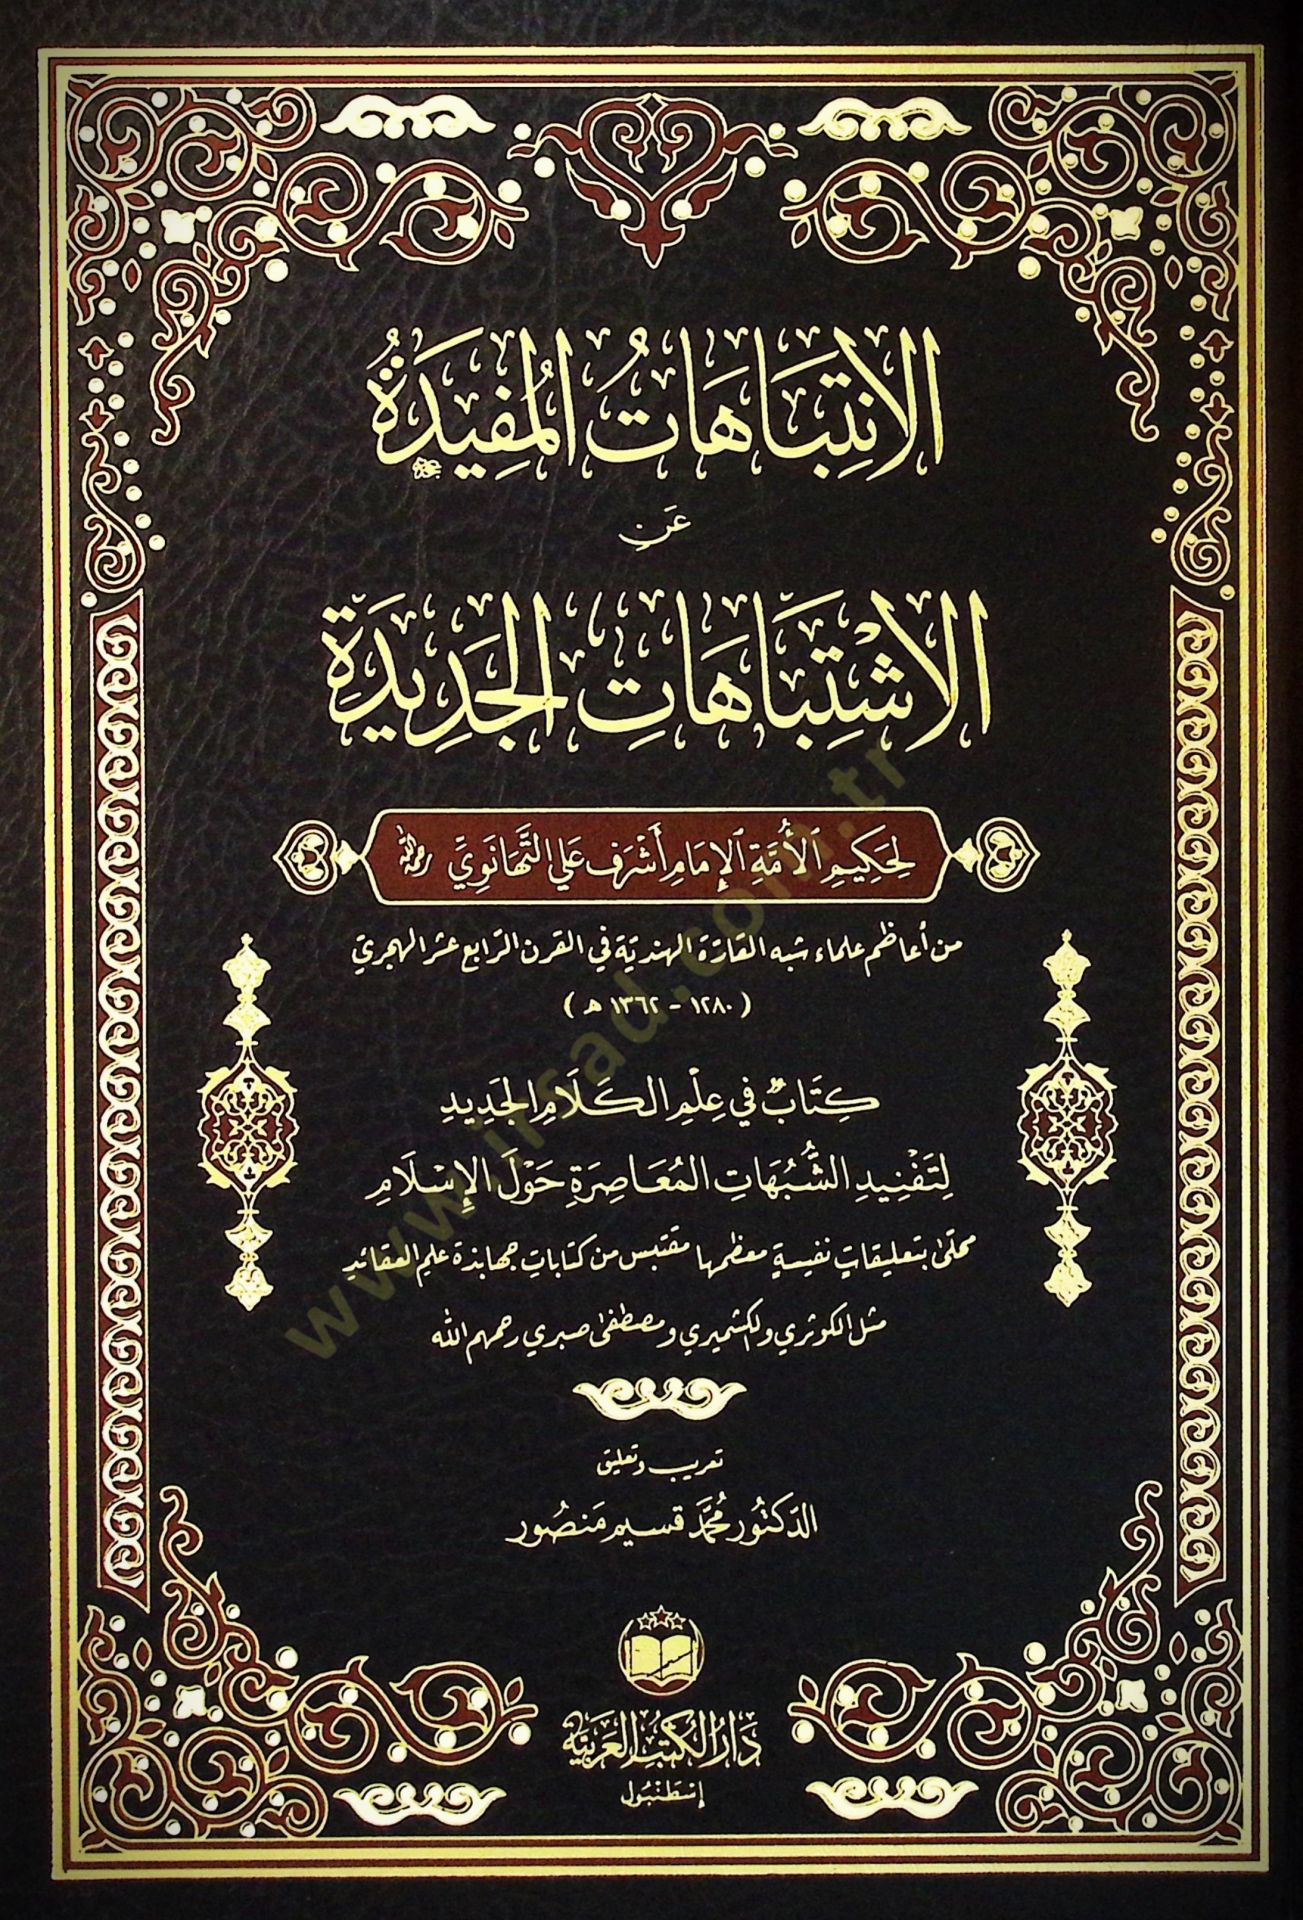 الِانْتِبَاهَاتُ المُفِيدَةُ
عَنِ
الِاشْتِبَاهَاتِ الجَدِيدَةِ
لِحَكِيمِ الأُمَّةِ الإِمَامِ أَشْرَف عَلِي التَّهَانَوِيِّ رحمه الله
من أعاظم علماء شبه القارّة الهنديّة في القرن الرّابع عشر الهجري
(١٢٨٠ - ١٣٦٢ هـ)
كِتَابٌ في عِلْمِ الكَلَامِ الجَدِيدِ
لِتَفْنِيدِ الشُّبُهَاتِ المُعَاصِرَةِ حَوْلَ الإِسْلَامِ
محلّى بتعليقاتٍ نفيسةٍ معظمها مقتبس من كتابات جهابذة علم العقائد
مثل الكوثري والكشميري ومصطفى صبري رحمهم الله
تعريب وتعليق
الدّكتُور مُحَمَّد قسيم مَنصُور
دَارُ الكُتُبِ العَرَبِيَّة
إسْطَنْبُول
www.irsad.com.tr